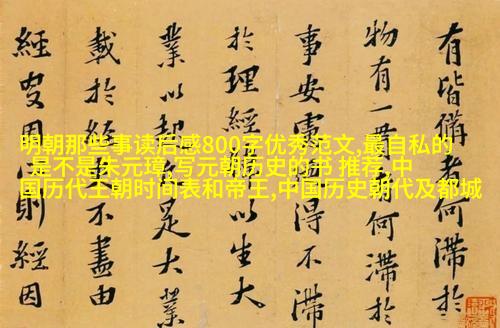 有皆備者何滞於
物有一何滞於
事安得不滞
於理經以生大
業以是大業
載於不盡由
經因則經因
明朝那些事读后感800字优秀范文,最自私的
是不是朱元璋,写元朝历史的书 推荐,中
国历代王朝时间表和帝王,中国历史朝代及都城